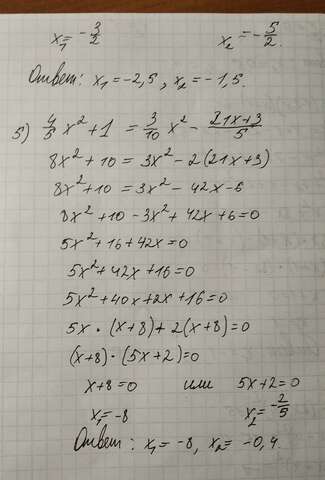 x₁ = -3/2 x₂ = -5/2.
Ответ: x₁ = -2,5, x₂ = -1,5.
5) 4/5 x² + 1 = 3/10 x² - (21x+3)/5
8x² + 10 = 3x² - 2(21x+3)
8x² + 10 = 3x² - 42x - 6
8x² + 10 - 3x² + 42x + 6 = 0
5x² + 16 + 42x = 0
5x² + 42x + 16 = 0
5x² + 40x + 2x + 16 = 0
5x · (x+8) + 2(x+8) = 0
(x+8) · (5x+2) = 0
x+8 = 0 или 5x+2 = 0
x₁ = -8 x₂ = -2/5
Ответ: x₁ = -8, x₂ = -0,4.